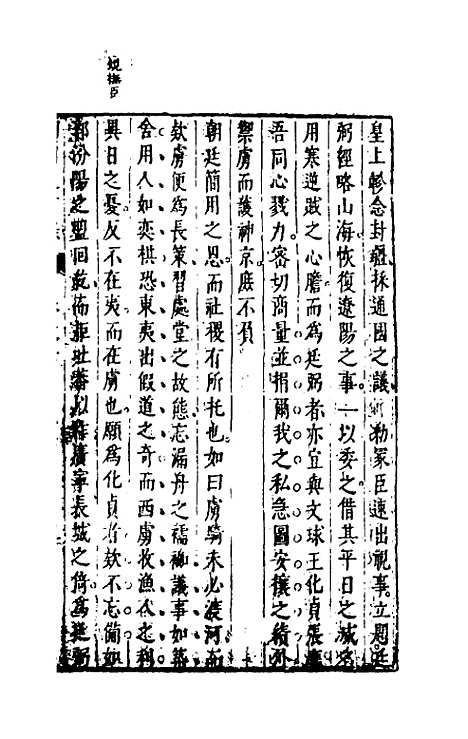 規撫臣
皇上軫念封疆採通國之議
勅冢臣速出視事立題廷
弼經略山海恢復遼陽之事一以委之借其平日之威名
用寒逆賊之心膽而為廷弼者亦宜與文球王化貞張
吾同心戮力密切商量並捐爾我之私急圖安攘之績外
禦虜而護神京庶不負
朝廷簡用之恩而社稷有所托也如曰虜騎未必渡河而
欸虜便為長策習處堂之故態忘漏舟之襦袽議事如築
舍用人如奕棋恐東夷出假道之奇而西虜收漁人之利
異日之憂反不在夷而在虜也願為化貞者欸不忘備如
郭汾陽之盟回紇
寧長城之倚為廷弼